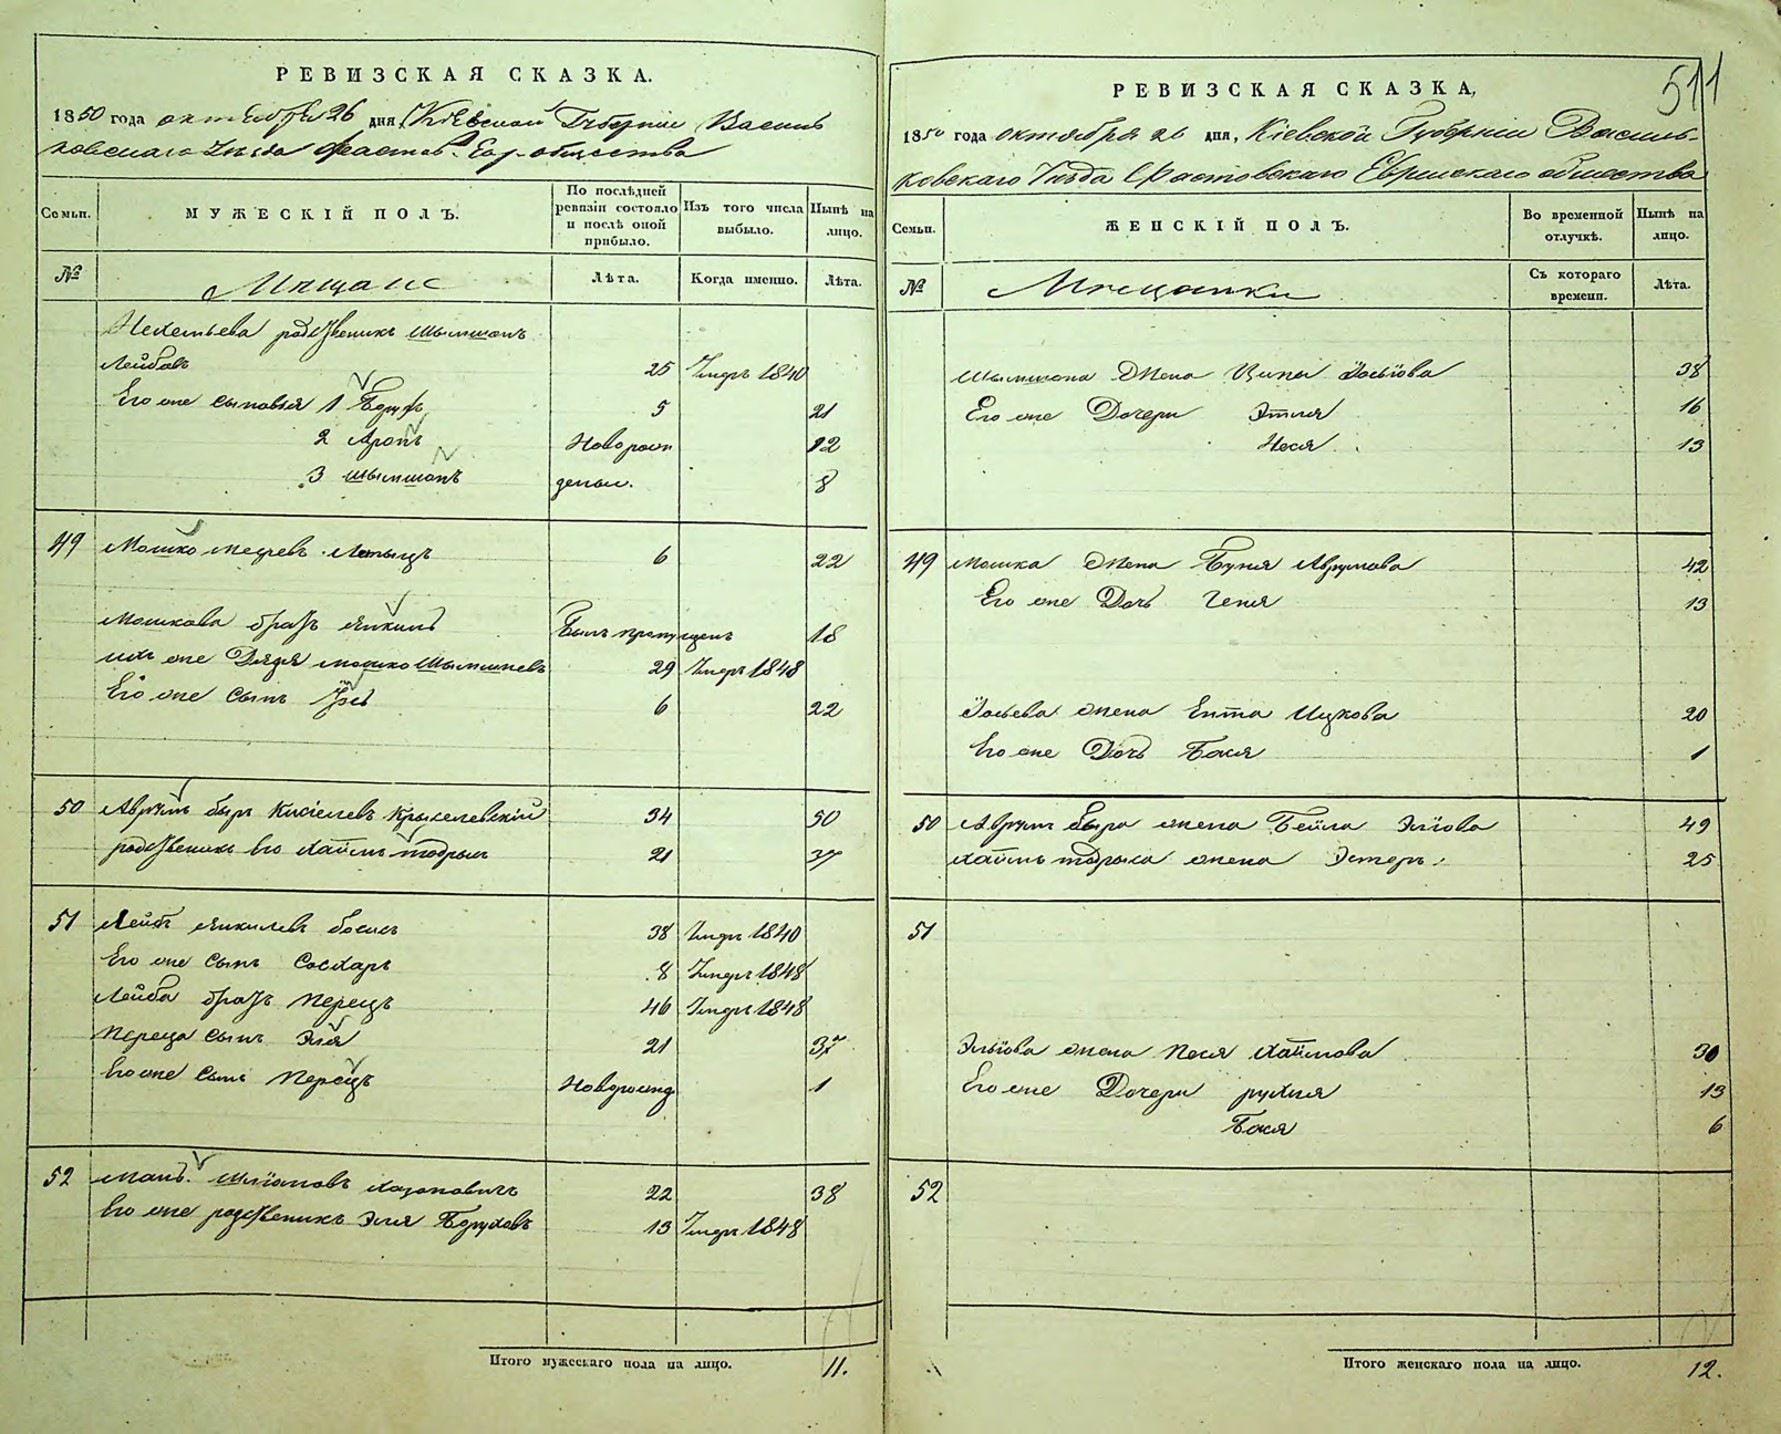 РЕВИЗСКАЯ СКАЗКА.
1850 года октября 26 дня, Кіевской Губерніи Василь
ковскаго Уѣзда Фастов. Евр. общества
Семьи. МУЖЕСКІЙ ПОЛЪ. По послѣдней ревизіи состояло и послѣ оной прибыло. Изъ того числа выбыло. Нынѣ на лицо.
№ Мещане Лѣта. Когда именно. Лѣта.
родственикъ Шымшонъ
Лейбовъ 25 Умеръ 1840
Его же сыновья 1 Борухъ 5 21
2 Аронъ Новорож 12
3 Шымшонъ дены. 8
49 Мошко 6 22
Мошкова братъ Янкиль Былъ пропущенъ 18
ихъ же Дядя Мошко 29 Умеръ 1848
Его же сынъ Іось 6 22
50 Аврумъ Беръ Кисіелевъ 34 50
родственикъ его Хаимъ Тодрысъ 21 37
51 Лейба Янкилевъ 38 Умеръ 1840
Его же сынъ 8 Умеръ 1848
Лейба братъ Перецъ 46 Умеръ 1848
Переца сынъ Эля 21 37
Его же сынъ Перецъ Новорожд 1
52 22 38
Его же родственикъ Эля Боруховъ 13 Умеръ 1848
Итого мужескаго пола на лицо. 11.
511
РЕВИЗСКАЯ СКАЗКА,
1850 года октября 26 дня, Кіевской Губерніи Василь-
ковскаго Уѣзда Фастовскаго Еврейскаго общества
Семьи. ЖЕНСКІЙ ПОЛЪ. Во временной отлучкѣ. Нынѣ на лицо.
№ Мещанки Съ котораго времени. Лѣта.
Шымшона Жена Ципа Іосіова 38
Его же Дочери Этля 16
Неся 13
49 Мошка Жена Буня Аврумова 42
Его же Дочь Геня 13
Іосьева жена Ента Ицкова 20
Его же Дочь Бася 1
50 Аврумъ Бера жена Бейла Эліова 49
Хаимъ Тодрыса жена Эстеръ 25
51
Эльіова жена Песя Хаймова 30
Его же Дочери Рухля 13
Бася 6
52
Итого женскаго пола на лицо. 12.